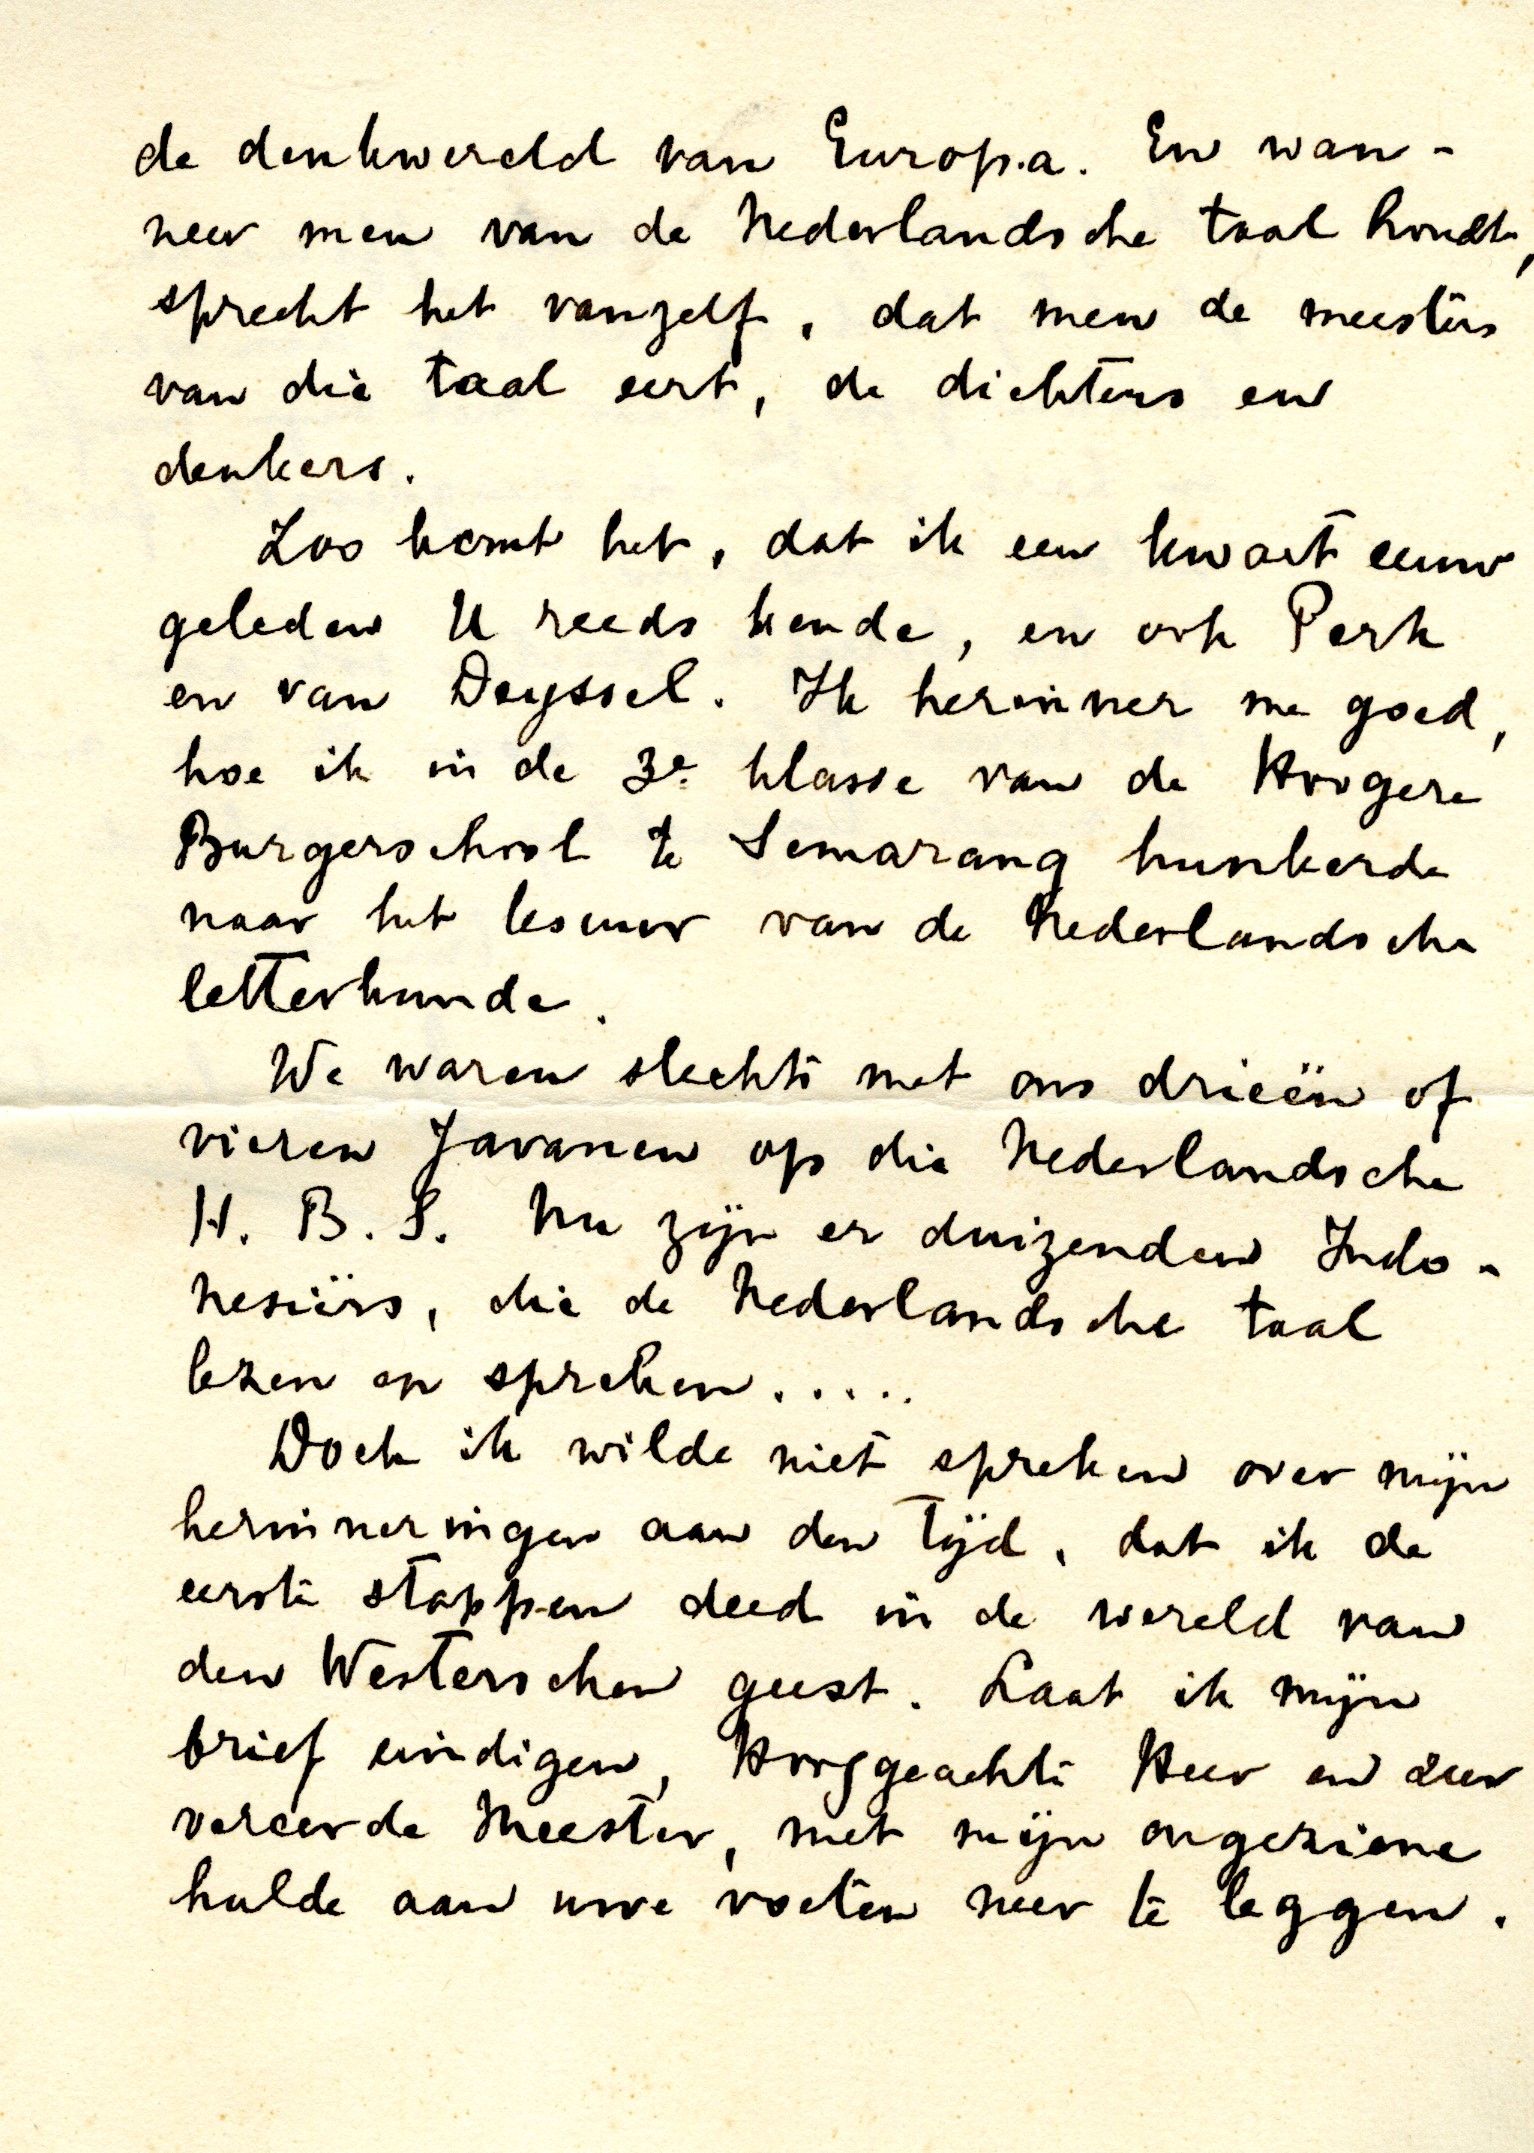 de denkwereld van Europa. En wan-
neer men van de Nederlandsche taal houdt,
spreekt het vanzelf, dat men de meesters
van die taal eert, de dichters en
denkers.
Zoo komt het, dat ik een kwart eeuw
geleden U reeds kende, en ook Perk
en van Deyssel. Ik herinner me goed,
hoe ik in de 3e klasse van de Hoogere
Burgerschool te Semarang hunkerde
naar het lesuur van de Nederlandsche
letterkunde.
We waren slechts met ons drieën of
vieren Javanen op die Nederlandsche
H. B. S. Nu zijn er duizenden Indo-
nesiërs, die de Nederlandsche taal
lezen en spreken.....
Doch ik wilde niet spreken over mijn
herinneringen aan den tijd, dat ik de
eerste stappen deed in de wereld van
den Westerschen geest. Laat ik mijn
brief eindigen, Hooggeachte Heer en zeer
vereerde Meester, met mijn ongeziene
hulde aan uwe voeten neer te leggen.